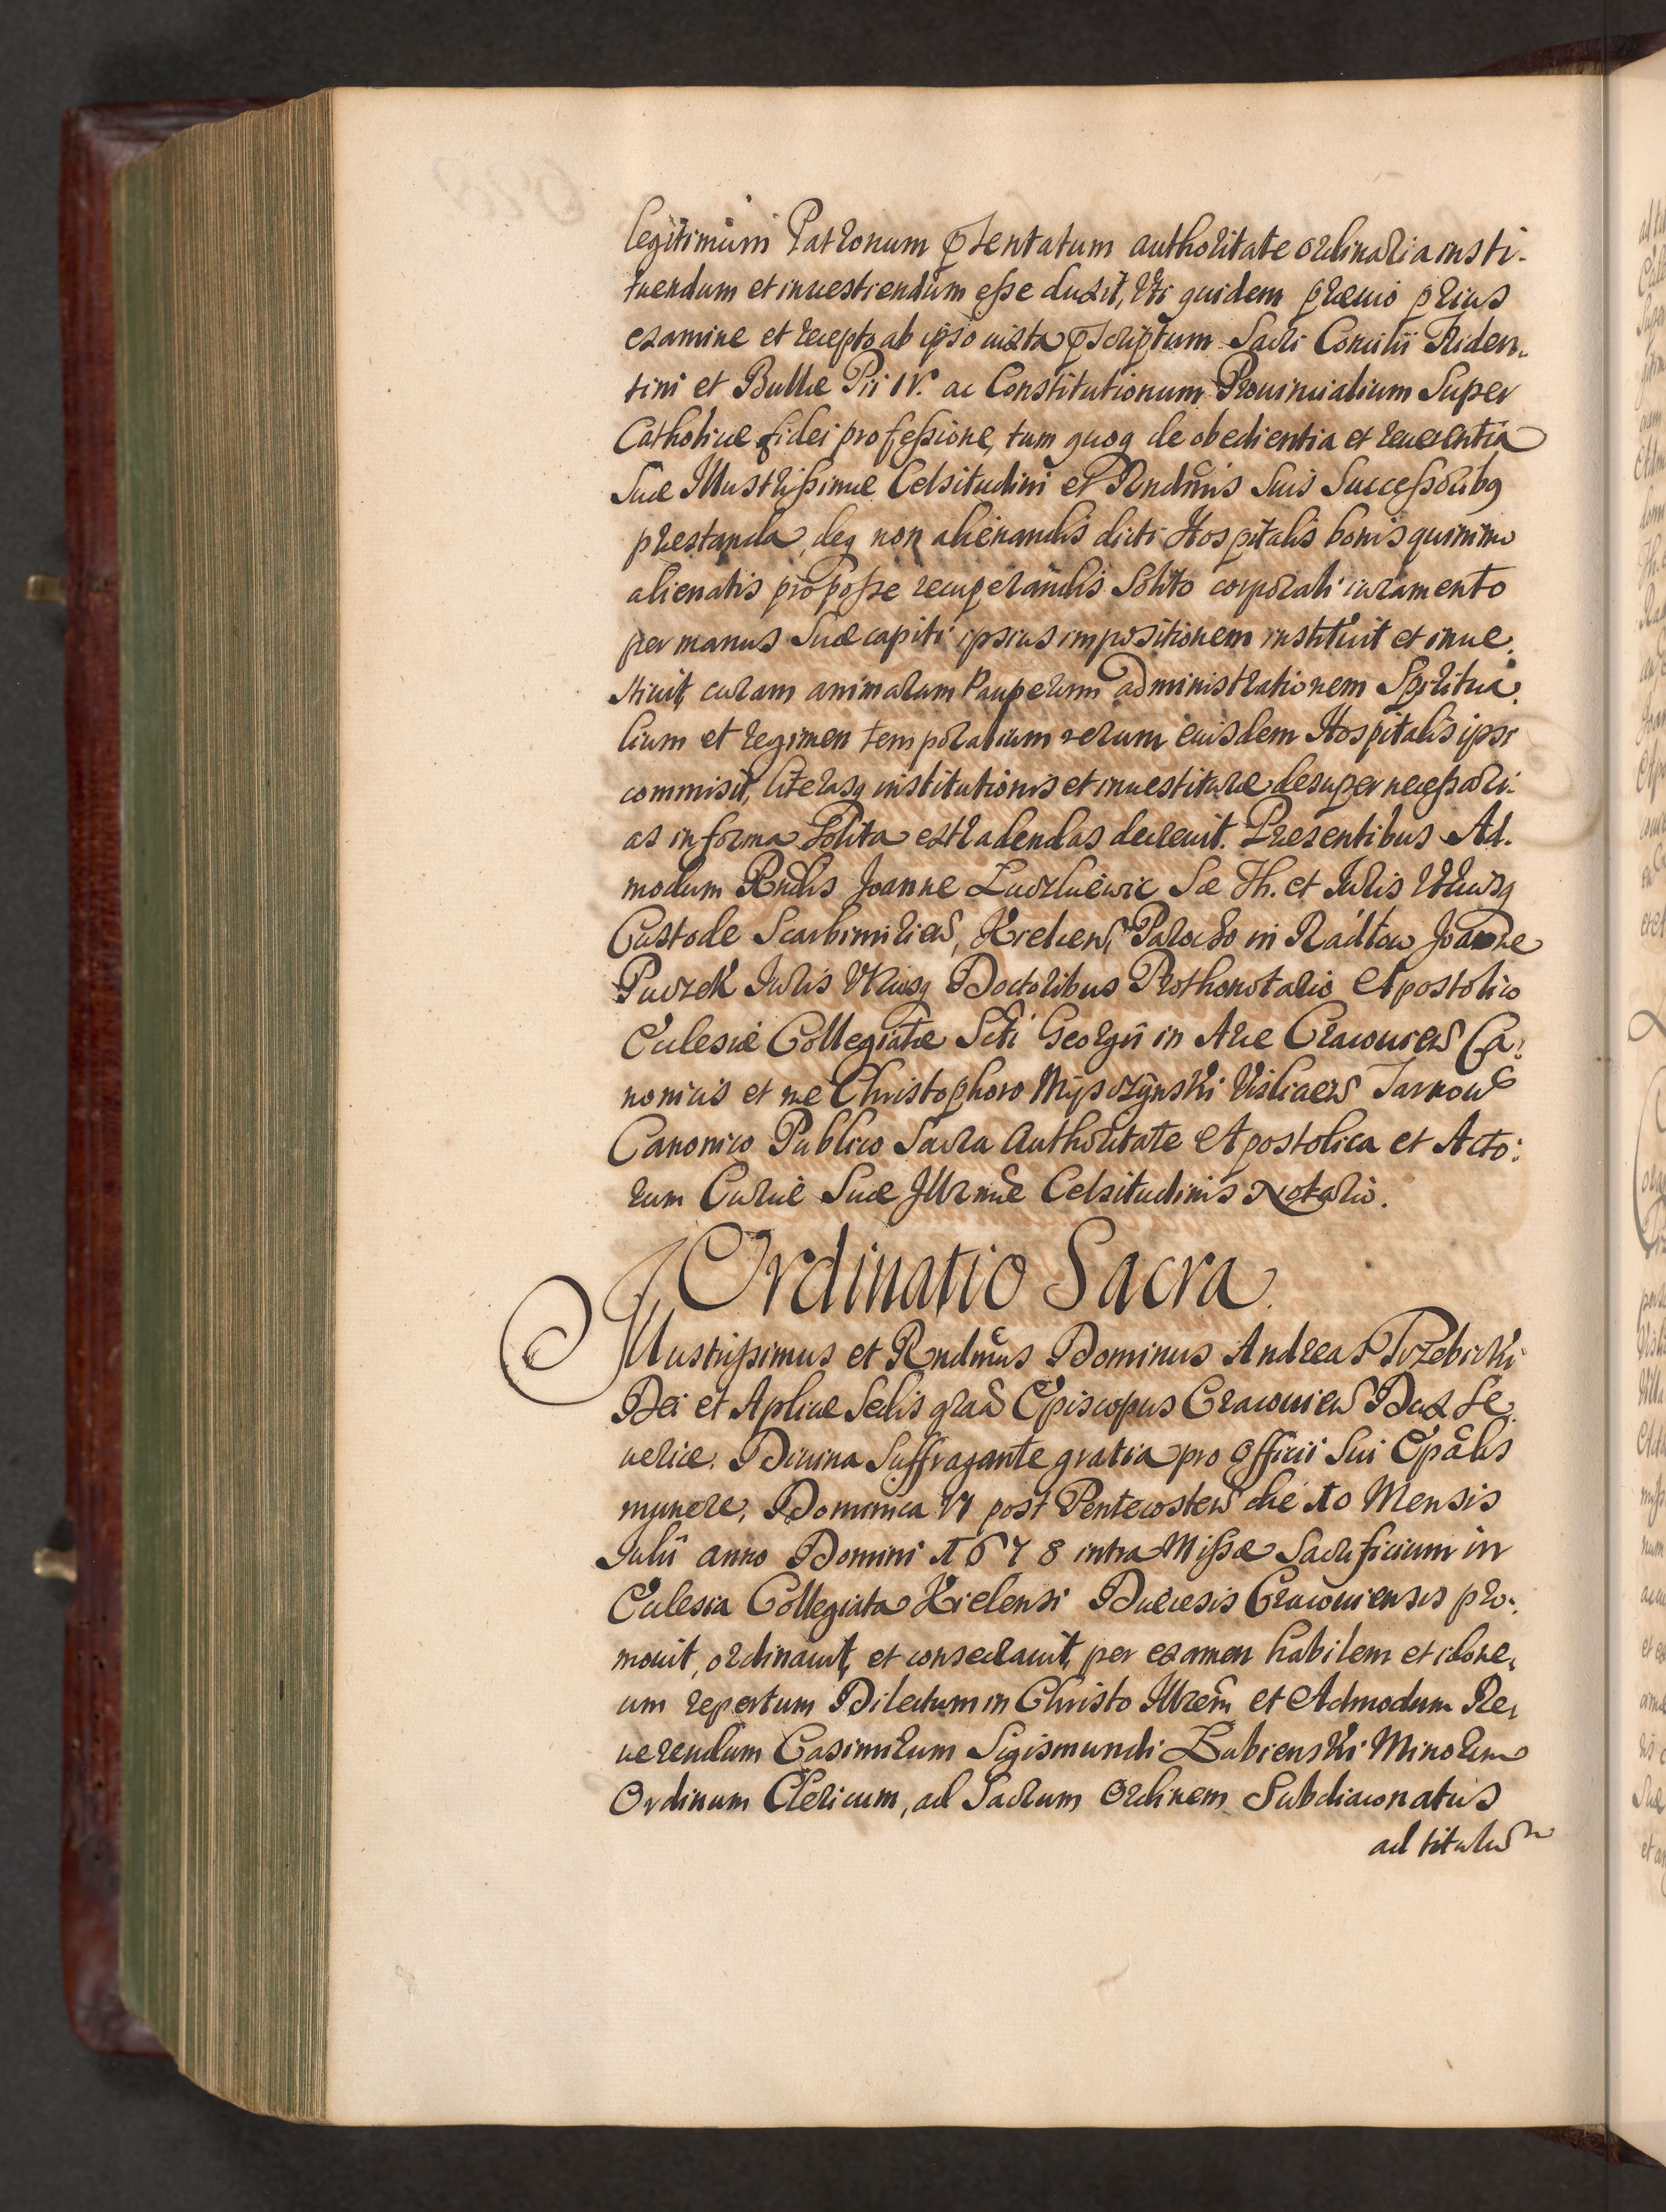 legitimum Patronum pntentatum authoritate ordinaria insti-
tuendum et inuestiendum esse duxit, Vti quidem præuio prius
examine et recepto ab ipso iuxta pscriptum Sacri Concilii Triden-
tini et Bullæ Pii IV. ac Constitutionum Prouincialium Super
Catholicæ fidei professione, tum quoq de obedientia et reuerentia
Suæ Illustrissimæ Celsitudini et Rndmis Suis Successoribq
præstanda, deq non alienandis dicti Hospitalis bonis quinimo
alienatis pro posse recuperandis Solito corporali iuramento
per manus Suæ capiti ipsius impositionem instituit et inue-
stiuit, curam animarum Pauperum administrationem Spiritua-
lium et regimen temporalium rerum eiusdem Hospitalis ipsi
commisit, literasq institutionis et inuestituræ desuper necessari-
as in forma Solita extradendas decreuit. Præsentibus Ad-
modum Rndis Joanne Sæ Th. et Iuris Vtriusq
Custode Scarbimirien, Kielcen, Parocho in Radłow Joanne
Pucrek Iuris Vtriusq Doctoribus Prothonotario Apostolico
Ecclesiæ Collegiatæ Scti Georgii in Arce Cracouien Ca-
nonicis et me Christophoro Mijsoszÿnski Vislicien Tarnouc
Canonico Publico Sacra Authoritate Apostolica et Acto-
rum Curiæ Suæ Illrmæ Celsitudinis Notario.
Ordinatio Sacra.
Illustrissimus et Rndmus Dominus Andreas Trzebicki
Dei et Aplicæ Sedis graa Episcopus Cracouien Dux Se-
ueriæ. Diuina Suffragante gratia pro Officii Sui Epalis
munere, Dominica VI post Pentecosten die 10 Mensis
Iulii anno Domini 1678 intra Missæ Sacrificium in
Ecclesia Collegiata Kielcensi Diæcesis Cracouiensis pro-
mouit, ordinauit, et consecrauit, per examen habilem et idone-
um repertum Dilectum in Christo Illrem et Admodum Re-
uerendum Casimirum Sigismundi Łubienski Minorum
Ordinum Clericum, ad Sacrum Ordinem Subdiaconatus
ad titulum